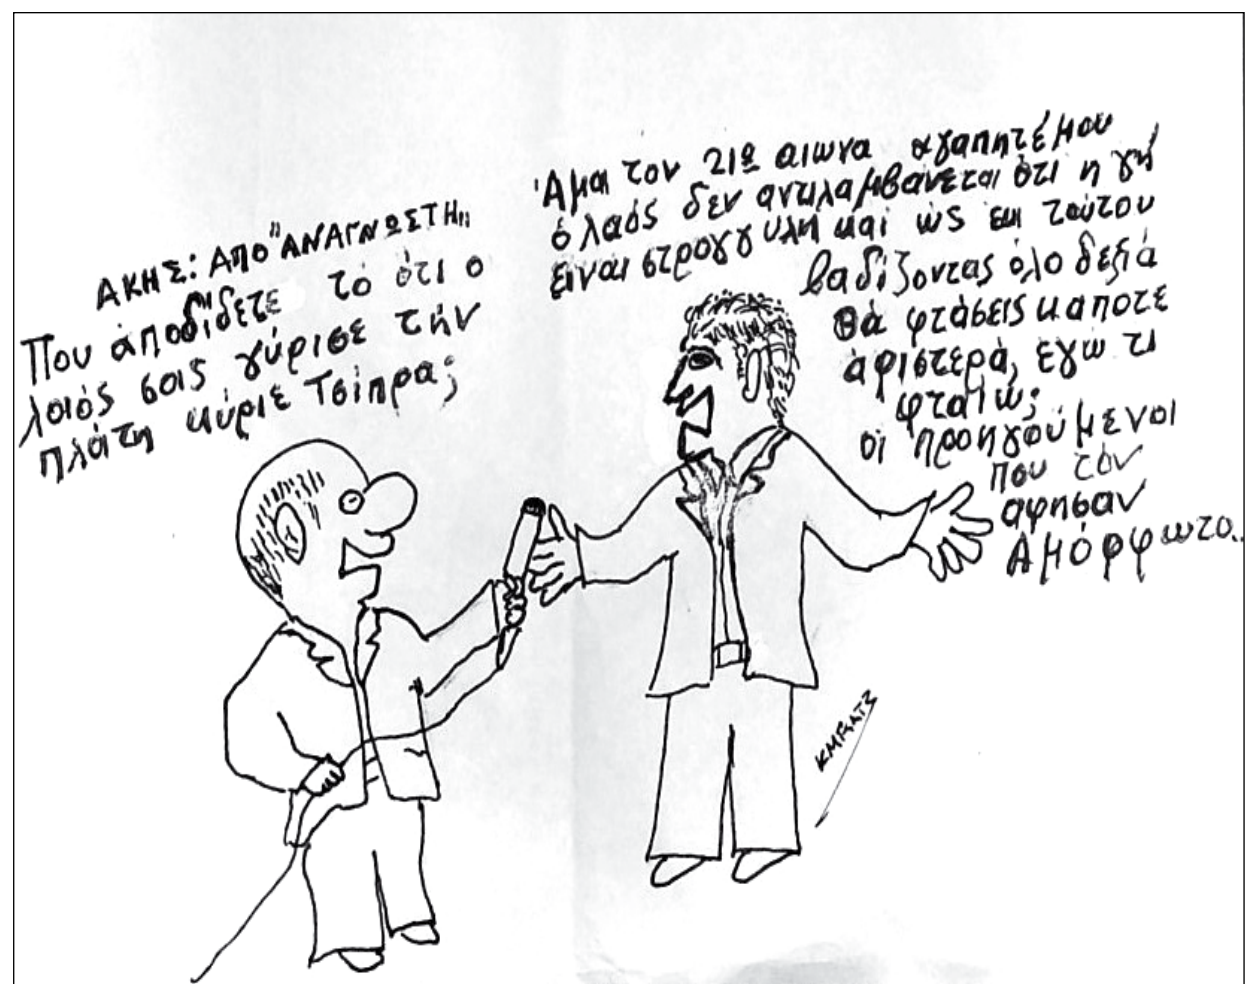 ΑΚΗΣ: ΑΠΟ "ΑΝΑΓΝΩΣΤΗ"
Που ἀποδίδετε τό ότι ο
λαός σας γύρισε τήν
πλάτη κύριε Τσίπρα;
Άμα τον 21ο αιωνα αγαπητέ μου
ό λαός δεν αντιλαμβάνεται ότι η γή
είναι στρογγυλή και ώς εκ τούτου
βαδίζοντας όλο δεξιά
θά φτάσεις κάποτε
ἀριστερά, εγώ τι
φταίω;
οί προηγούμενοι
που τόν
αφησαν
Αμόρφωτο..